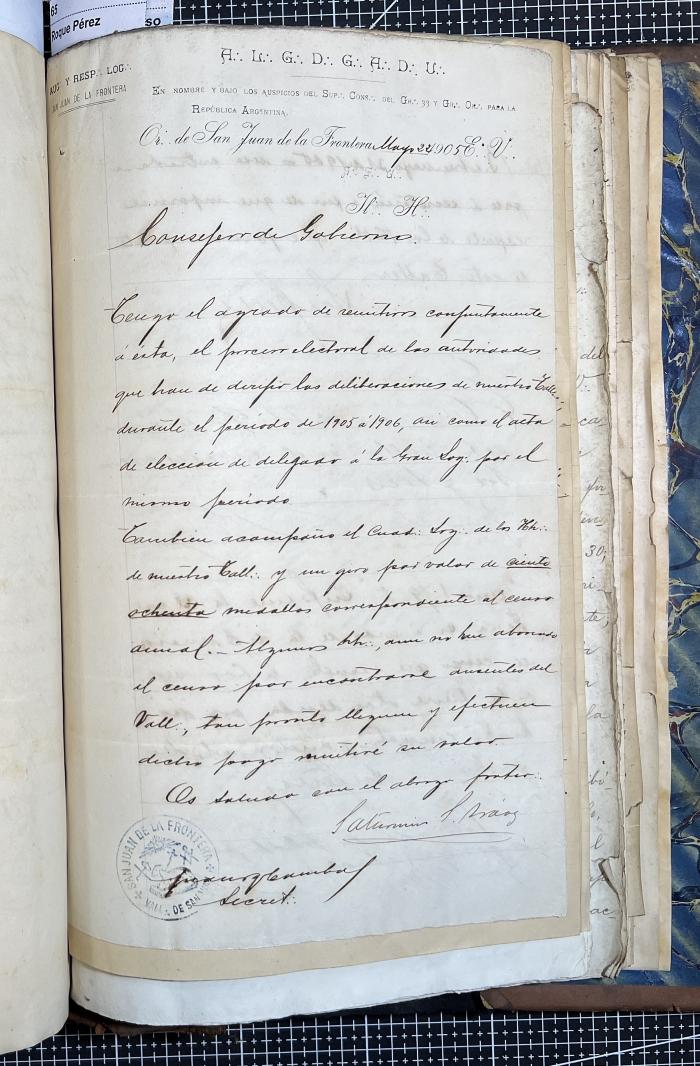 65
Roque Pérez
so
A∴ L∴ G∴ D∴ G∴ A∴ D∴ U∴
AUG∴ Y RESP∴ LOG∴
SAN JUAN DE LA FRONTERA
En nombre y bajo los auspicios del Sup∴ Cons∴ del Gr∴ 33 y Gr∴ Or∴ para la
República Argentina.
Or∴ de San Juan de la Frontera Mayo 22 1905 E∴ V∴
H∴ H∴
Consejero de Gobierno.
Tengo el agrado de remitiros conjuntamente
á ésta, el proceso electoral de las autoridades
que han de dirijir las deliberaciones de nuestro Tall∴
durante el período de 1905 á 1906, asi como el acta
de elección de delegado á la Gran Log∴ por el
mismo período
Tambien acompaño el Cuad∴ Log∴ de los Hh∴
de nuestro Tall∴ y un giro por valor de ciento
ochenta medallas correspondiente al censo
anual.– Algunos hh∴, aun no han abonado
el censo por encontrarse ausentes del
Vall∴, tan pronto lleguen y efectuen
dicho pago remitiré su valor.
Os saluda con el abrazo frater∴
Saturnino S. Aráoz
SAN JUAN DE LA FRONTERA
VALL∴ DE SAN
Secret∴
del
ca
30,
te,
la
l
ac